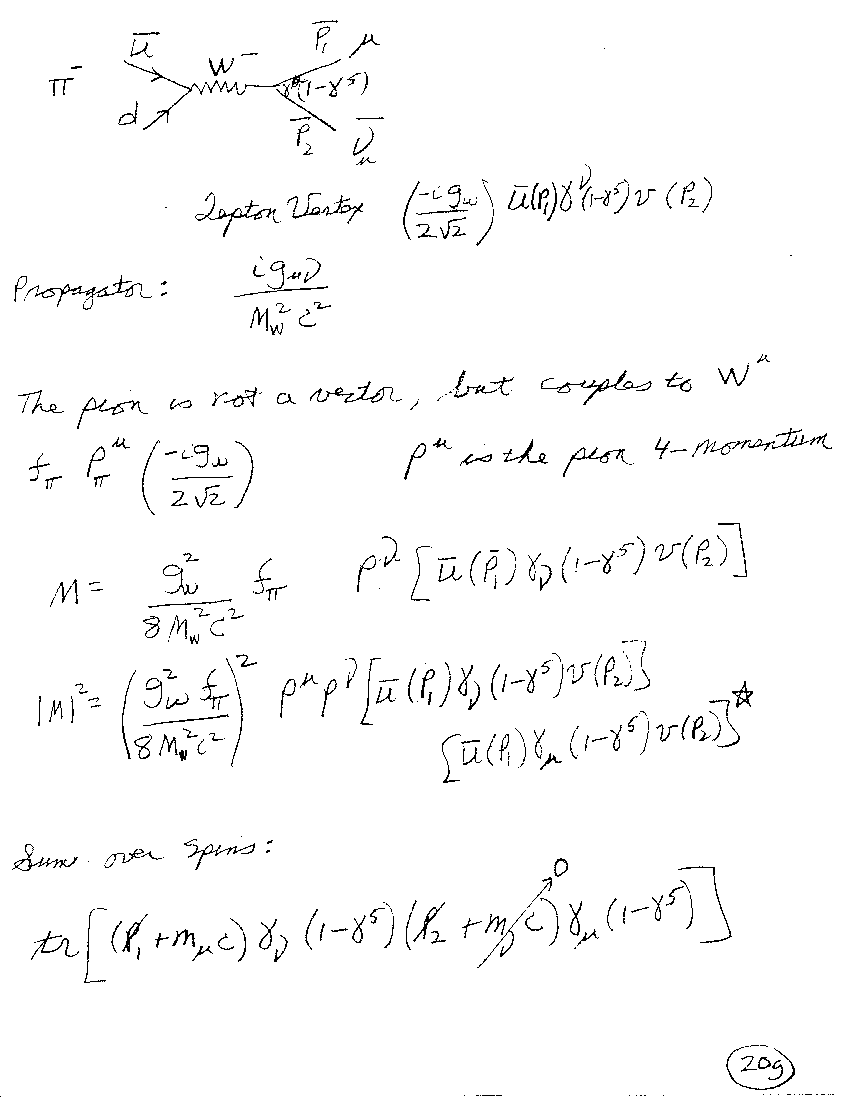 π⁻ ū d W⁻ P̄₁ μ γ^ν(1-γ⁵) P̄₂ ν̄_μ
Lepton Vertex (-ig_w / 2√2) ū(P₁)γ^ν(1-γ⁵) v(P₂)
Propagator: ig_μν / M_W² c²
The pion is not a vector, but couples to W^μ
f_π P_π^μ (-ig_w / 2√2) P^μ is the pion 4-momentum
M = g_w² / 8M_w²c² f_π P^ν [ū(P̄₁) γ_ν (1-γ⁵) v(P₂)]
|M|² = (g_w² f_π / 8M_w²c²)² P^μ P^ν [ū(P₁) γ_ν (1-γ⁵) v(P₂)]
[ū(P₁) γ_μ (1-γ⁵) v(P₂)]*
Sum over spins:
tr[(P̸₁ + m_μ c) γ_ν (1-γ⁵) (P̸₂ + m_ν c) γ_μ (1-γ⁵)] 0
20g